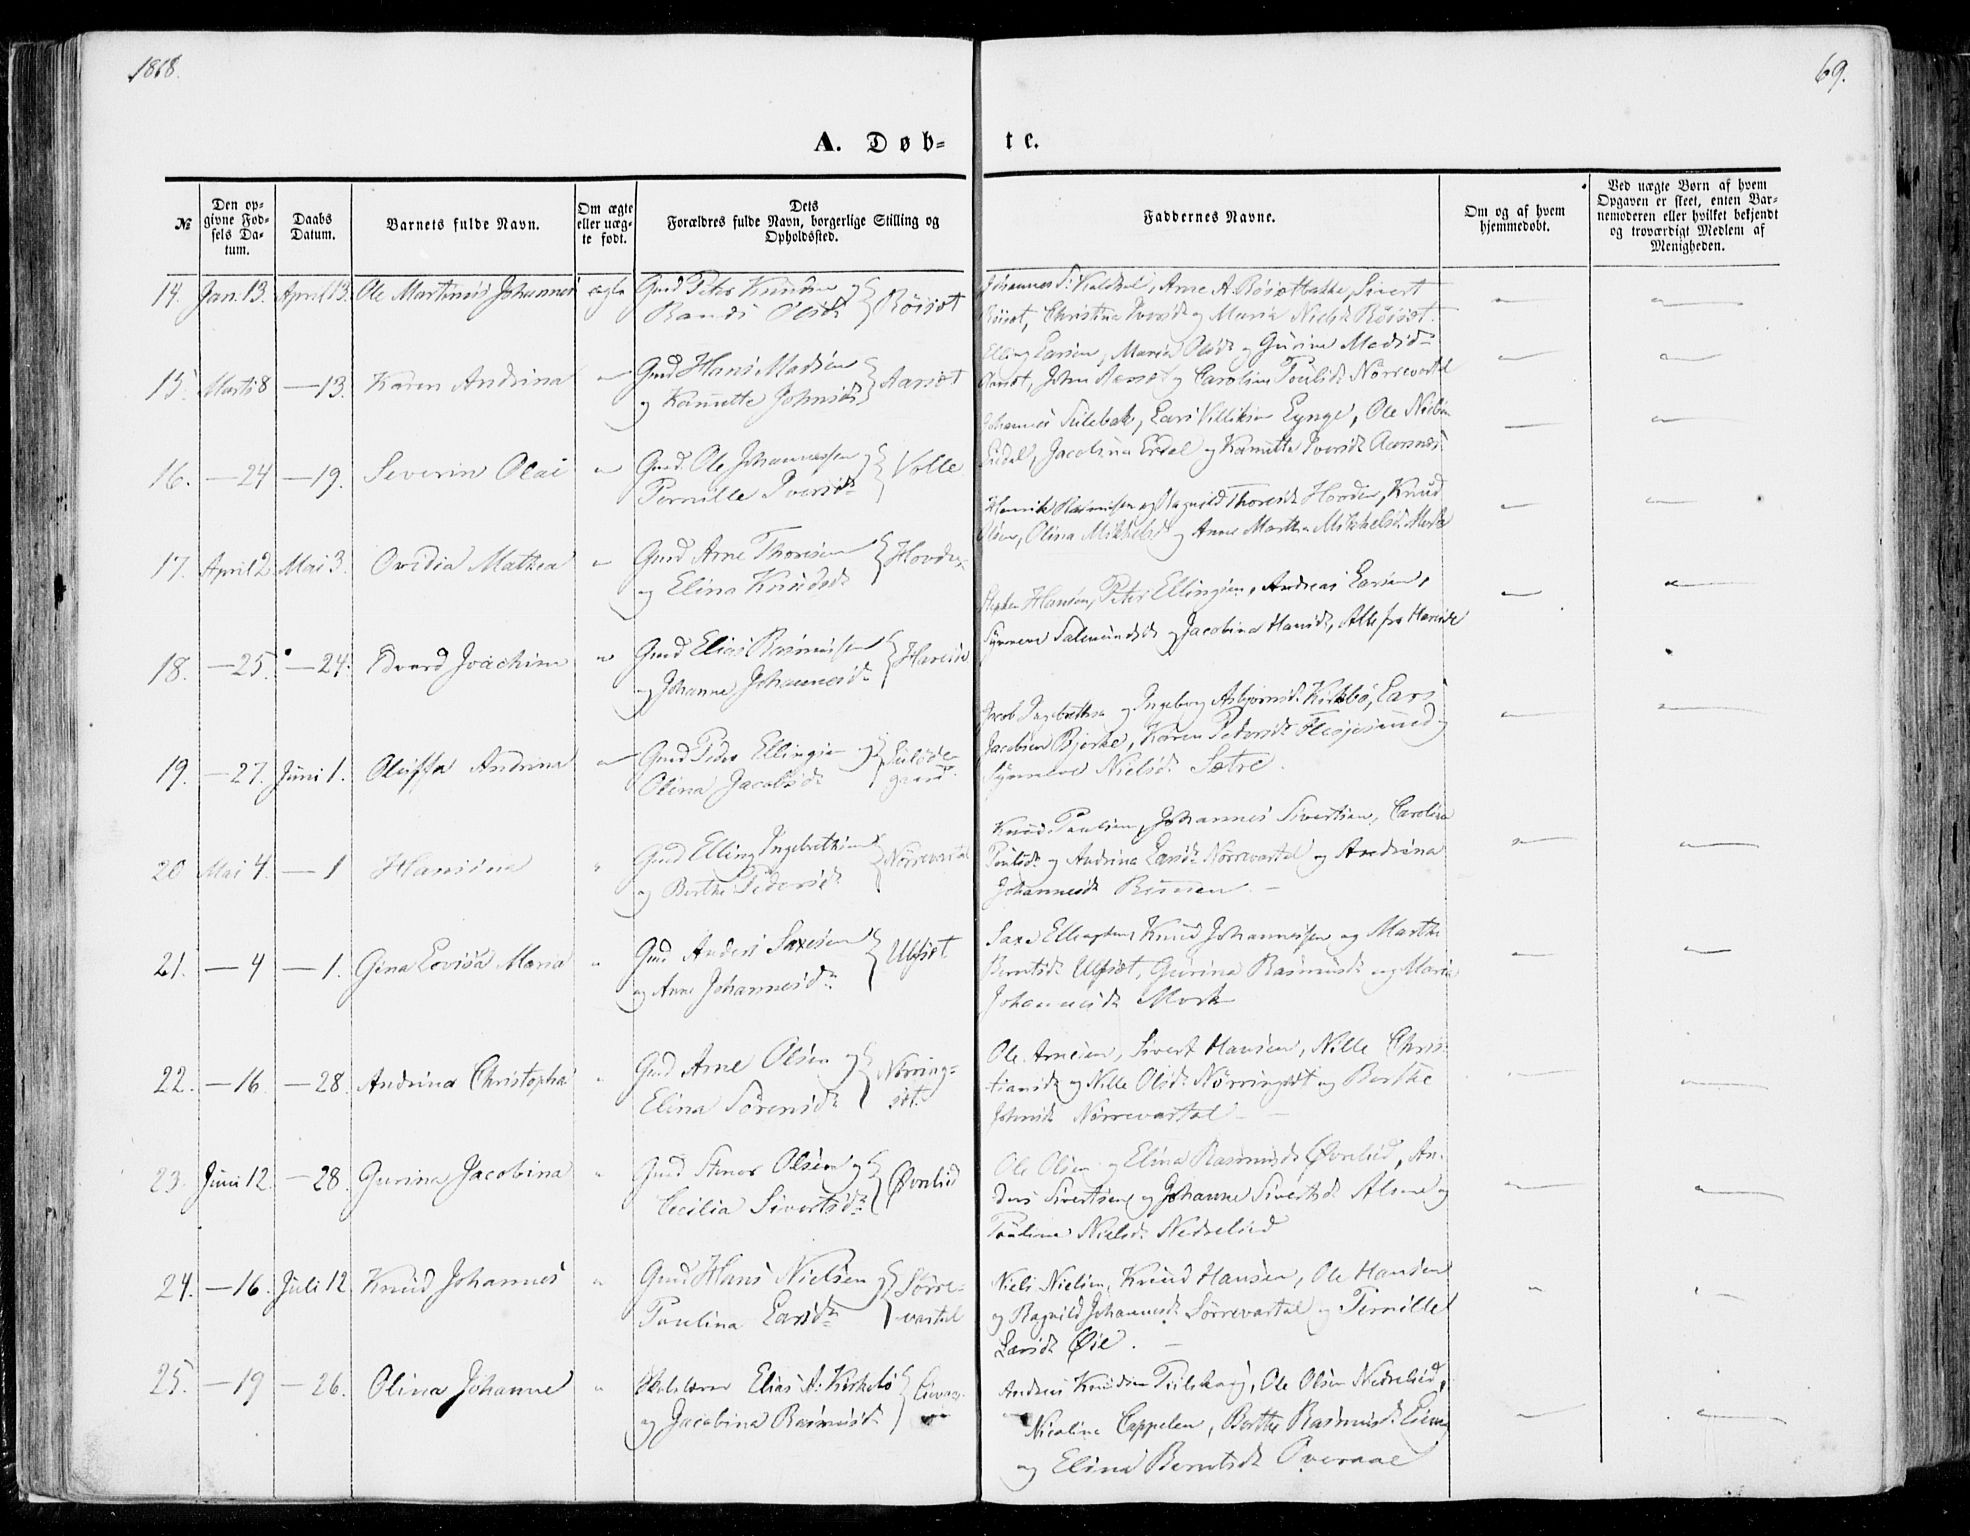 1868.
69.
A. Døb-
te.
№
Den op-
givne Fød-
sels Da-
tum.
Daabs
Datum.
Barnets fulde Navn.
Om ægte
eller uæg-
te født.
Dets
Forældres fulde Navn, borgerlige Stilling og
Opholdssted.
Faddernes Navne.
Om og af hvem
hjemmedøbt.
Ved uægte Børn af hvem
Opgaven er skeet, enten Bar-
nemoderen eller hvilket bekjendt
og troværdigt Medlem af
Menigheden.
14. Jan. 13. April 13. Ole Martinus Johannes ægte Gmd Peter Knudsen og
Olsdt Röisæt
Arne A. Sivert
Christine og Maria Nielsdt Röisæt
15. Marts 8 — 13. Karen Andrina Gmd Hans Madsen
og Kanutte Johnsdt Aarsæt
Elling Larsen, Maria Olsdt og Gurine Madsdt
Aarsæt, John Aarsæt og Caroline Poulsdt Nörrevartal
16. — 24 — 19. Severin Olai Gmd. Ole Johannessen og
Pernille Iversdt Volle
Johannes Sulebak, Lars Villiksen Lynge, Ole Nielsen
Jacobine Erdal og Kanutte Iversdt Aarsnes
17. April 2 Mai 3. Ovidia Mathea Gmd Arne Thoresen
og Elina Knudsdt Hovden
Henrik Rasmussen og Ragnild Thoresdt Hovden, Knud
Olsen, Olina Mikkelsdt og Anne Martha Mikkelsdt Mork
18. — 25. — 24. Edvard Joachim Gmd Elias Rasmussen
og Johanne Johannesdt Hareide
Hansen, Peter Ellingsen, Andreas Larsen,
Synneve Salmundsdt og Jacobine Hansdt, Alle fra Hareide
19. — 27. Juni 1. Oluffa Andrina Gmd Peder Ellingsen og
Olina Jacobsdt
Jacob Ingebrethsen og Ingeborg Asbjörnsdt Kirkbö, Lars
Jacobsen Bjerke, Karen Pedersdt og
Synneve Nielsdt Sætre.
20 Mai 4. — 1 Hansine Gmd Elling Ingebrethsen
og Berthe Pedersdt Nörrevartal
Knud Paulsen, Johannes Sivertsen, Caroline
Poulsdt og Andrina Larsdt Nörrevartal og Andrina
Johannesdt
21. — 4 — 1. Gina Lovisa Maria Gmd Anders Saxesen
og Anne Johannesdt Ulfsæt
Saxe Ellingsen, Knud Johannessen og Marthe
Berntsdt Ulfsæt, Gurina Rasmusdt og Maria
Johannesdt Mork
22. — 16. — 28. Andrina Christopha Gmd Arne Olsen og
Elina Sörensdt Nörring-
sæt.
Ole Arnesen, Sivert Hansen, Nille Chris-
tiansdt og Nille Olsdt Nörringsæt og Berthe
Johnsdt Nörrevartal
23. Juni 12. — 28. Gurina Jacobina Gmd Stener Olsen og
Cecilia Sivertsdt Øvrelid
Ole Olsen og Elina Rasmusdt Øvrelied, An-
ders Sivertsen og Johanne Sivertsdt Alsne og
Pauline Nielsdt Nedrelied
24. — 16. Juli 12 Knud Johannes Gmd Hans Nielsen og
Paulina Larsdt Sörre-
vartal
Niels Nielsen, Knud Hansen, Ole Hansen
og Ragnild Johannesdt Sörrevartal og Pernille
Larsdt Øie.
25. — 19 — 26. Olina Johanne Skolelærer Elias A. Kirkebö
og Jacobina Rasmusdt
Andreas Knudsen Ole Olsen Nedrelied,
Nicoline Cappelen, Berthe Rasmusdt
og Elina Berntsdt Overaae